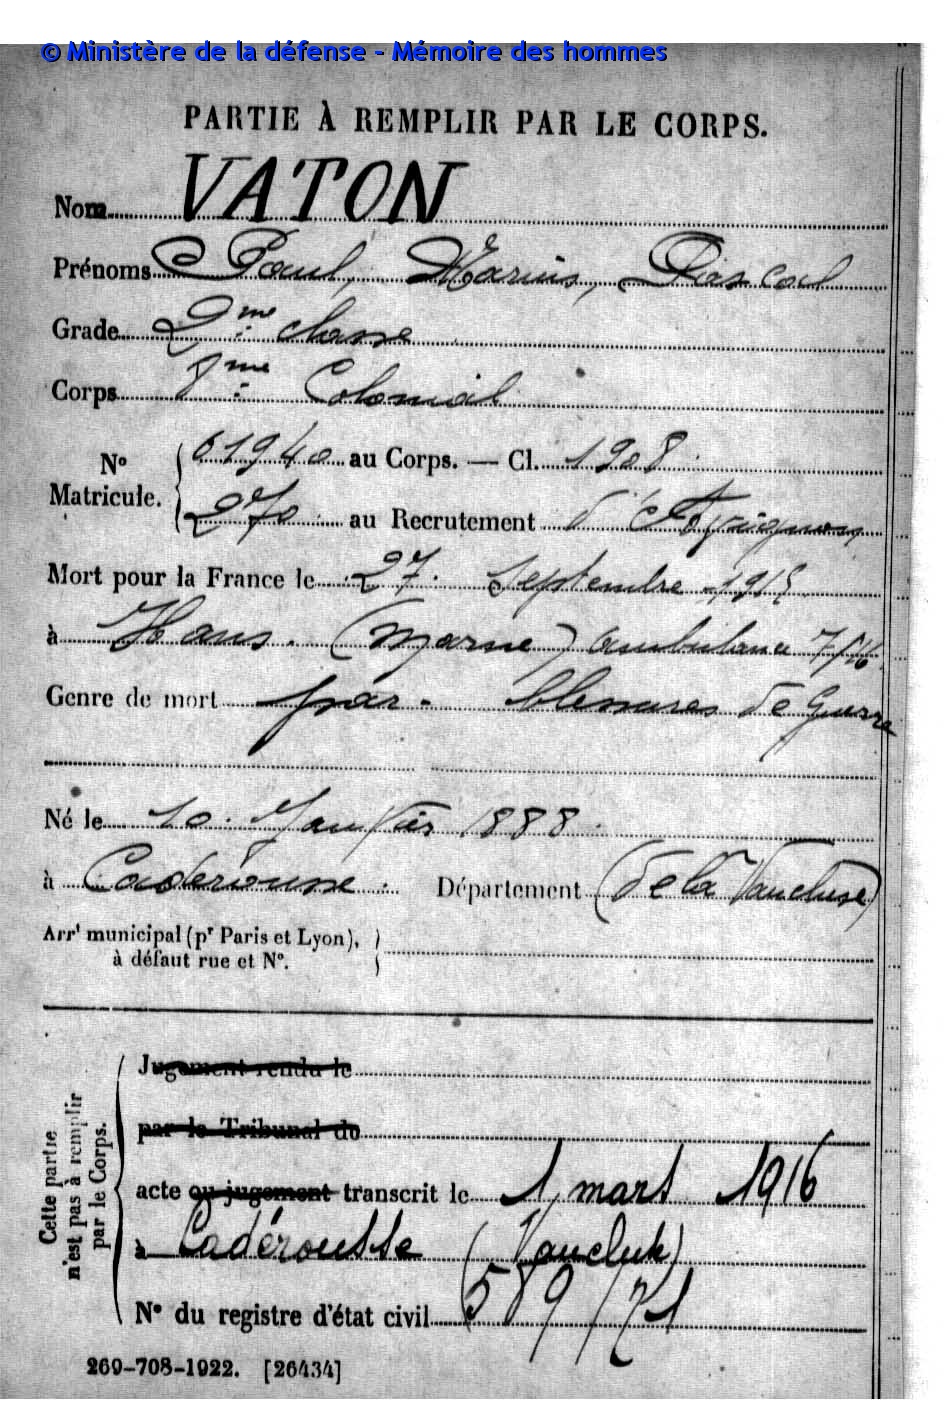 © Ministère de la défense - Mémoire des hommes
PARTIE À REMPLIR PAR LE CORPS.
Nom VATON
Prénoms Paul, Marius, Pascal
Grade 2me classe
Corps 8me Colonial
No Matricule. 01940 au Corps. — Cl. 1908
270 au Recrutement d'Avignon
Mort pour la France le 27 Septembre 1915
à Hans. (Marne) ambulance 7/16
Genre de mort par blessures de Guerre
Né le 10 Janvier 1888
à Caderousse. Département (de la Vaucluse)
Arrt municipal (pr Paris et Lyon),
à défaut rue et No.
Cette partie
n'est pas à remplir
par le Corps.
Jugement rendu le
par le Tribunal de
acte ou jugement transcrit le 1 mars 1916
à Cadérousse (Vaucluse)
No du registre d'état civil 589/71
269-708-1922. [26434]